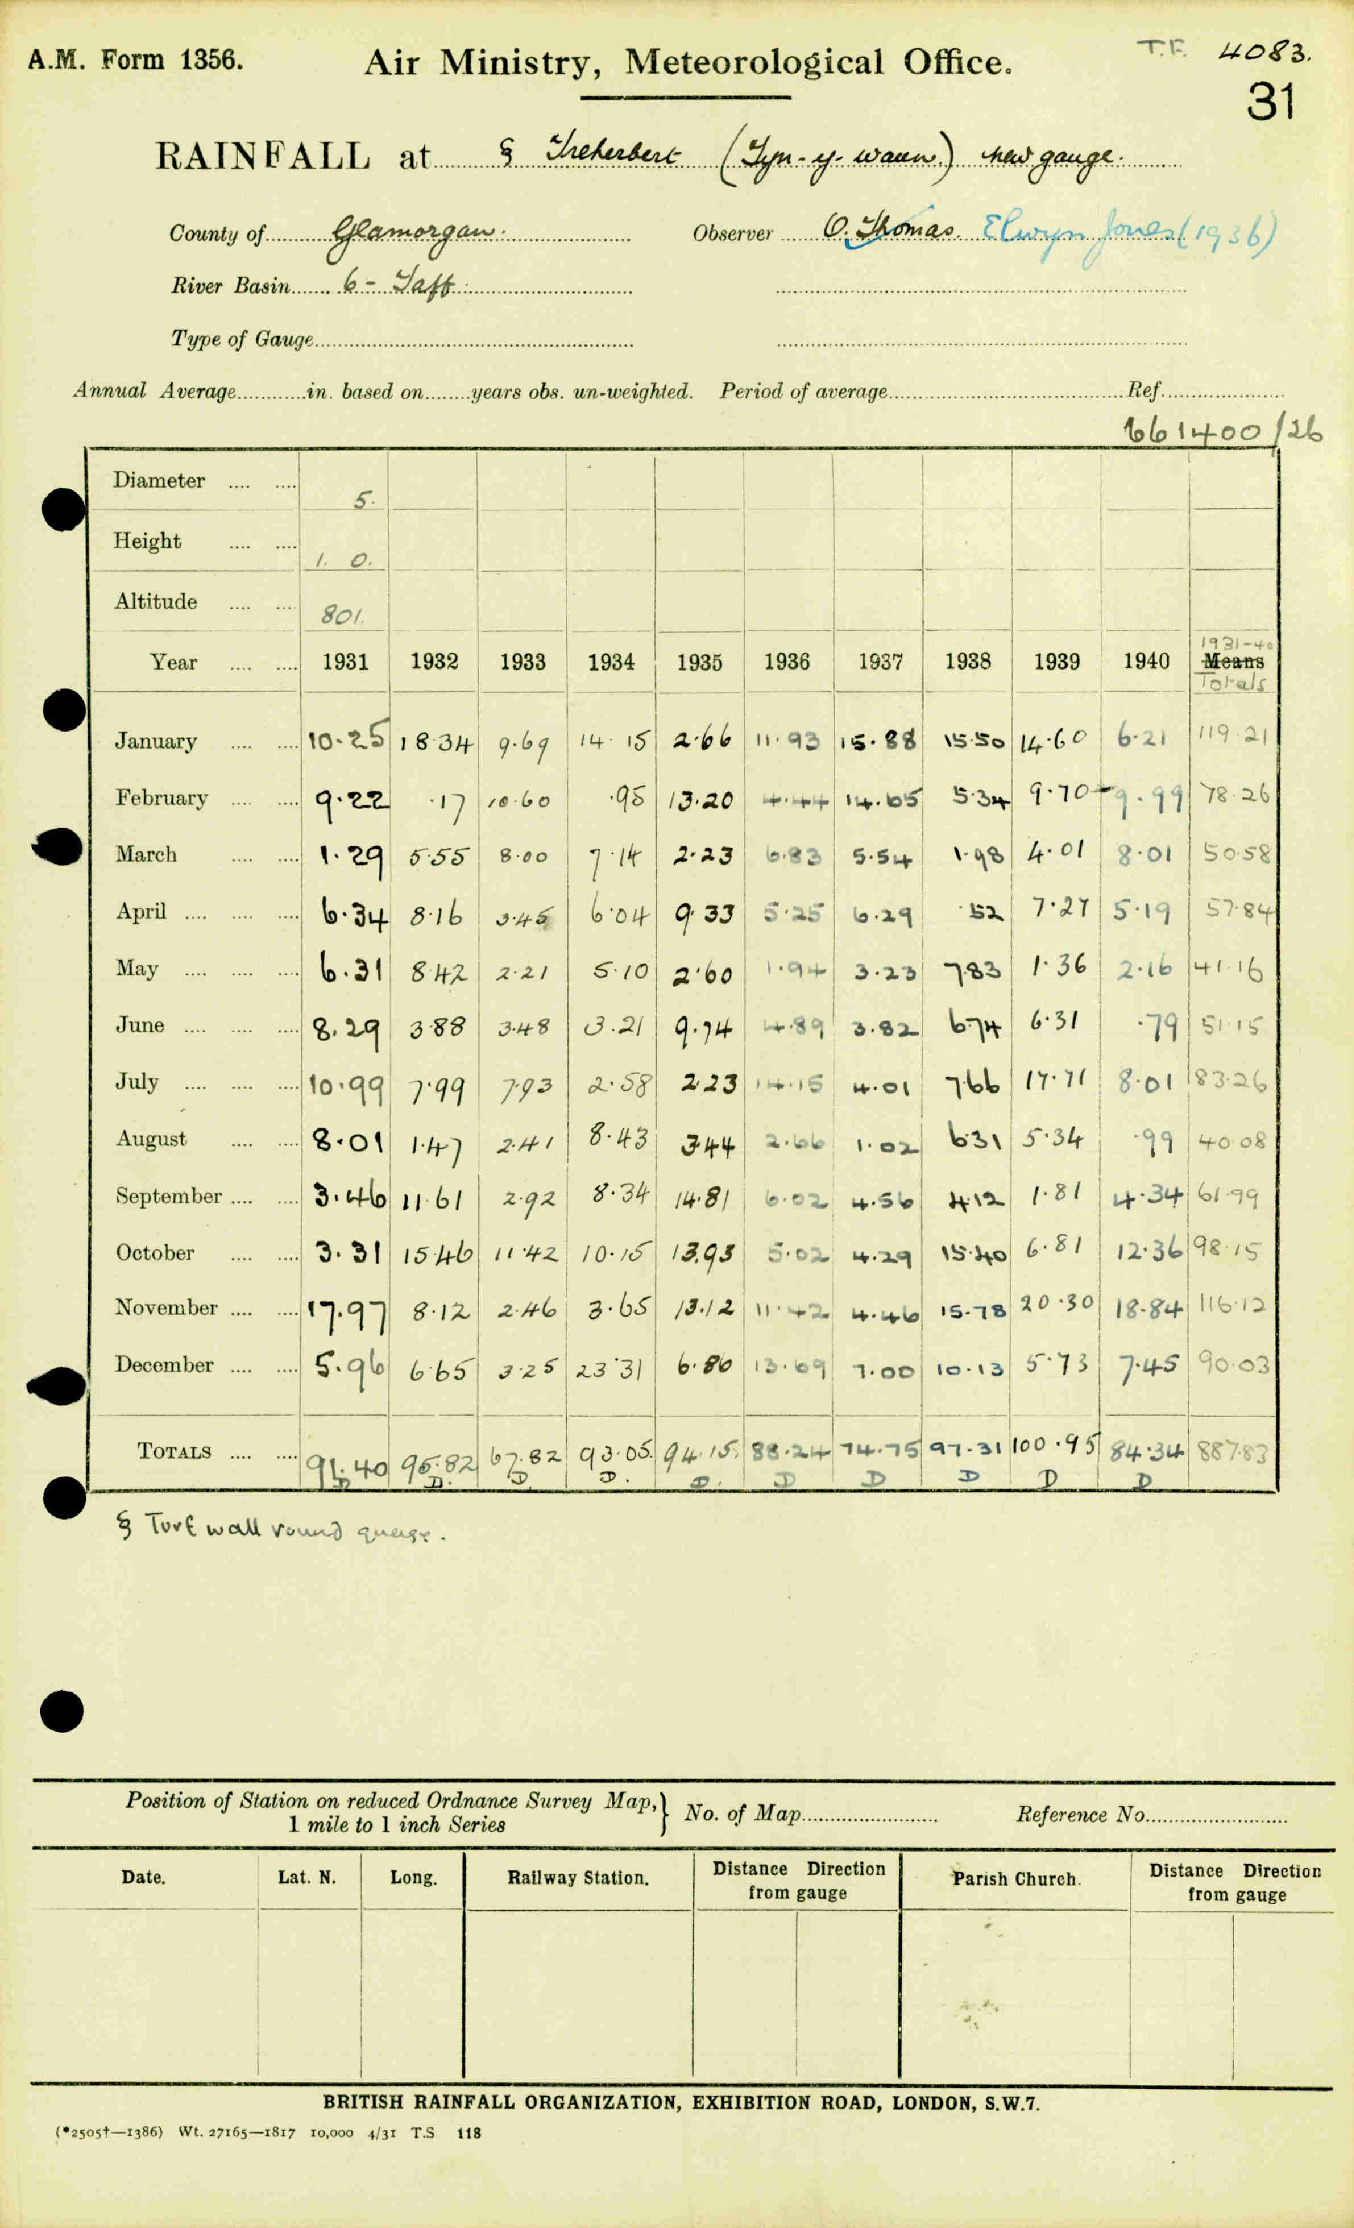 A.M. Form 1356. Air Ministry, Meteorological Office. T.F. 4083.
31
RAINFALL at § Treherbert (Tyn-y-waun) new gauge.
County of Glamorgan. Observer O. Thomas. Elwyn Jones (1936)
River Basin 6 - Taff
Type of Gauge
Annual Average in. based on years obs. un-weighted. Period of average Ref.
661400/26
Diameter 5.
Height 1. 0.
Altitude 801.
1931-40
Year 1931 1932 1933 1934 1935 1936 1937 1938 1939 1940 Means
Totals
January 10.25 18.34 9.69 14.15 2.66 11.93 15.88 15.50 14.60 6.21 119.21
February 9.22 .17 10.60 .95 13.20 4.44 14.65 5.34 9.70 9.99 78.26
March 1.29 5.55 8.00 7.14 2.23 6.83 5.54 1.98 4.01 8.01 50.58
April 6.34 8.16 3.45 6.04 9.33 5.25 6.29 .52 7.27 5.19 57.84
May 6.31 8.42 2.21 5.10 2.60 1.94 3.23 7.83 1.36 2.16 41.16
June 8.29 3.88 3.48 3.21 9.74 4.89 3.82 6.74 6.31 .79 51.15
July 10.99 7.99 7.93 2.58 2.23 14.15 4.01 7.66 17.71 8.01 83.26
August 8.01 1.47 2.41 8.43 3.44 2.66 1.02 6.31 5.34 .99 40.08
September 3.46 11.61 2.92 8.34 14.81 6.02 4.56 4.12 1.81 4.34 61.99
October 3.31 15.46 11.42 10.15 13.93 5.02 4.29 15.40 6.81 12.36 98.15
November 17.97 8.12 2.46 3.65 13.12 11.42 4.46 15.78 20.30 18.84 116.12
December 5.96 6.65 3.25 23.31 6.86 13.69 7.00 10.13 5.73 7.45 90.03
TOTALS 91.40 95.82 67.82 93.05 94.15 88.24 74.75 97.31 100.95 84.34 887.83
D D. D D. D. D D D D D
§ Turf wall round guage.
Position of Station on reduced Ordnance Survey Map, 1 mile to 1 inch Series } No. of Map Reference No.
Date. Lat. N. Long. Railway Station. Distance Direction from gauge Parish Church. Distance Direction from gauge
BRITISH RAINFALL ORGANIZATION, EXHIBITION ROAD, LONDON, S.W.7.
(*2505†—1386) Wt. 27165—1817 10,000 4/31 T.S 118